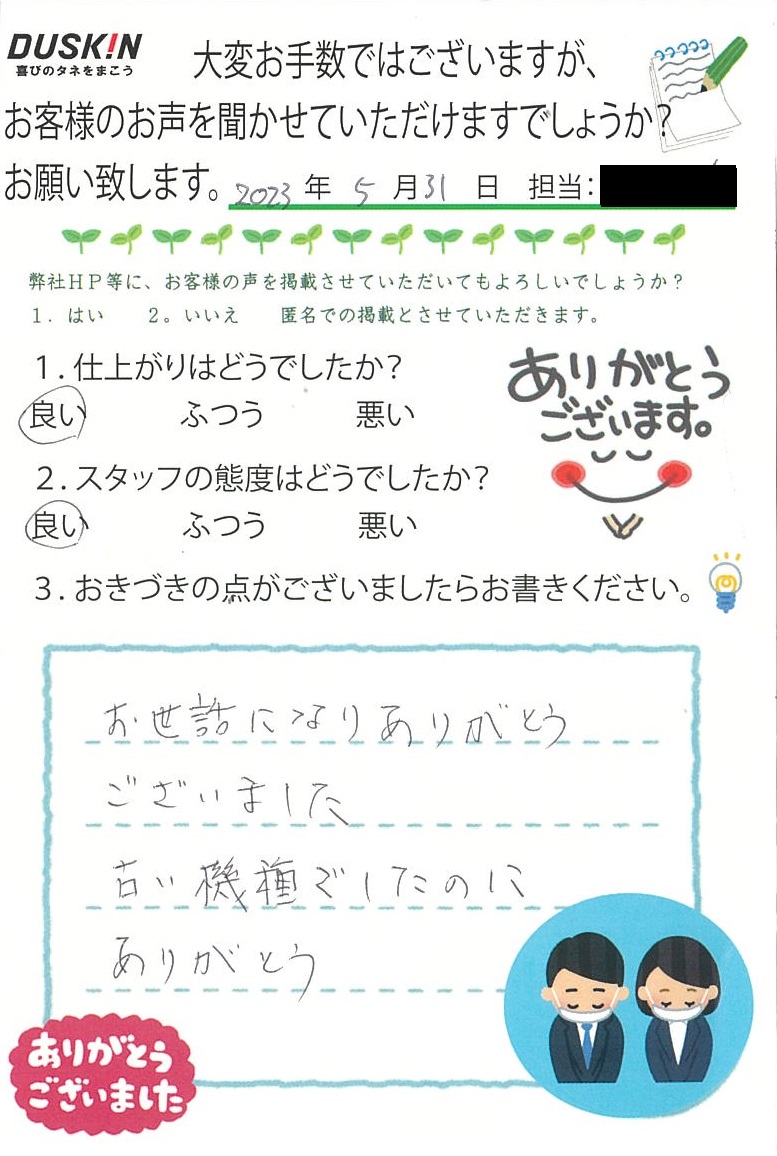 DUSK!N
喜びのタネをまこう
大変お手数ではございますが、
お客様のお声を聞かせていただけますでしょうか?
お願い致します。2023年 5月31日 担当:
弊社HP等に、お客様の声を掲載させていただいてもよろしいでしょうか?
1. はい 2。いいえ 匿名での掲載とさせていただきます。
1.仕上がりはどうでしたか?
良い ふつう 悪い
ありがとう
ございます。
2.スタッフの態度はどうでしたか?
良い ふつう 悪い
3.おきづきの点がございましたらお書きください。
お世話になりありがとう
ございました
古い機種でしたのに
ありがとう
ありがとう
ございました